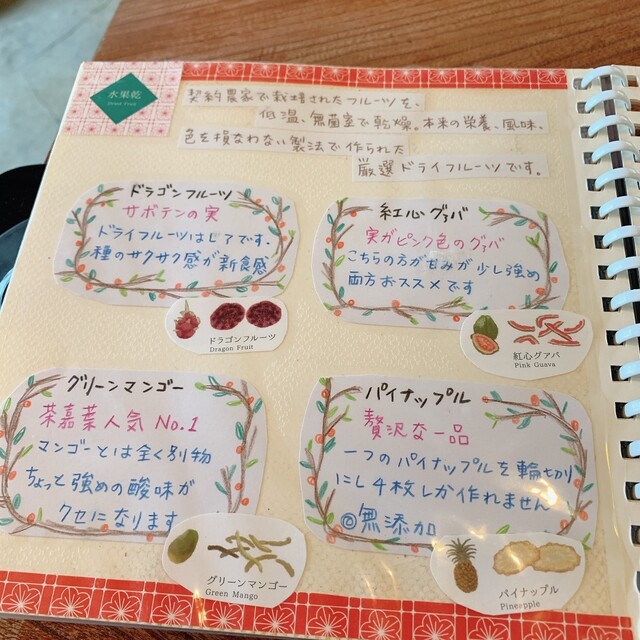 水果乾
Dried Fruit
契約農家で栽培されたフルーツを、
低温、無菌室で乾燥。本来の栄養、風味、
色を損なわない製法で作られた
厳選ドライフルーツです。
ドラゴンフルーツ
サボテンの実
ドライフルーツはレアです。
種のサクサク感が新食感
ドラゴンフルーツ
Dragon Fruit
紅心グァバ
実がピンク色のグァバ
こちらの方が甘みが少し強め
両方おススメです
紅心グアバ
Pink Guava
グリーンマンゴー
茶嘉葉人気 No.1
マンゴーとは全く別物
ちょっと強めの酸味が
クセになります
グリーンマンゴー
Green Mango
パイナップル
贅沢な一品
一つのパイナップルを輪切り
にし4枚しか作れません
◎無添加
パイナップル
Pineapple